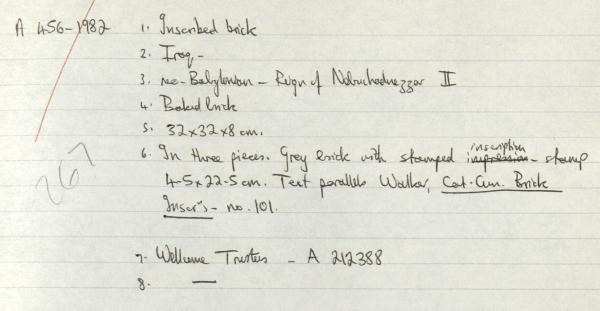 A 456-1982 1. Inscribed brick
2. Iraq -
3. neo-Babylonian - Reign of Nebuchadnezzar II
4. Baked brick
5. 32x32x8 cm.
6. In three pieces. Grey brick with stamped impression inscription - stamp
4.5x22.5cm. Text parallels Walker, Cat. Cun. Brick
Inscr's - no. 101.
267
7. Wellcome Trustees - A 212388
8. —